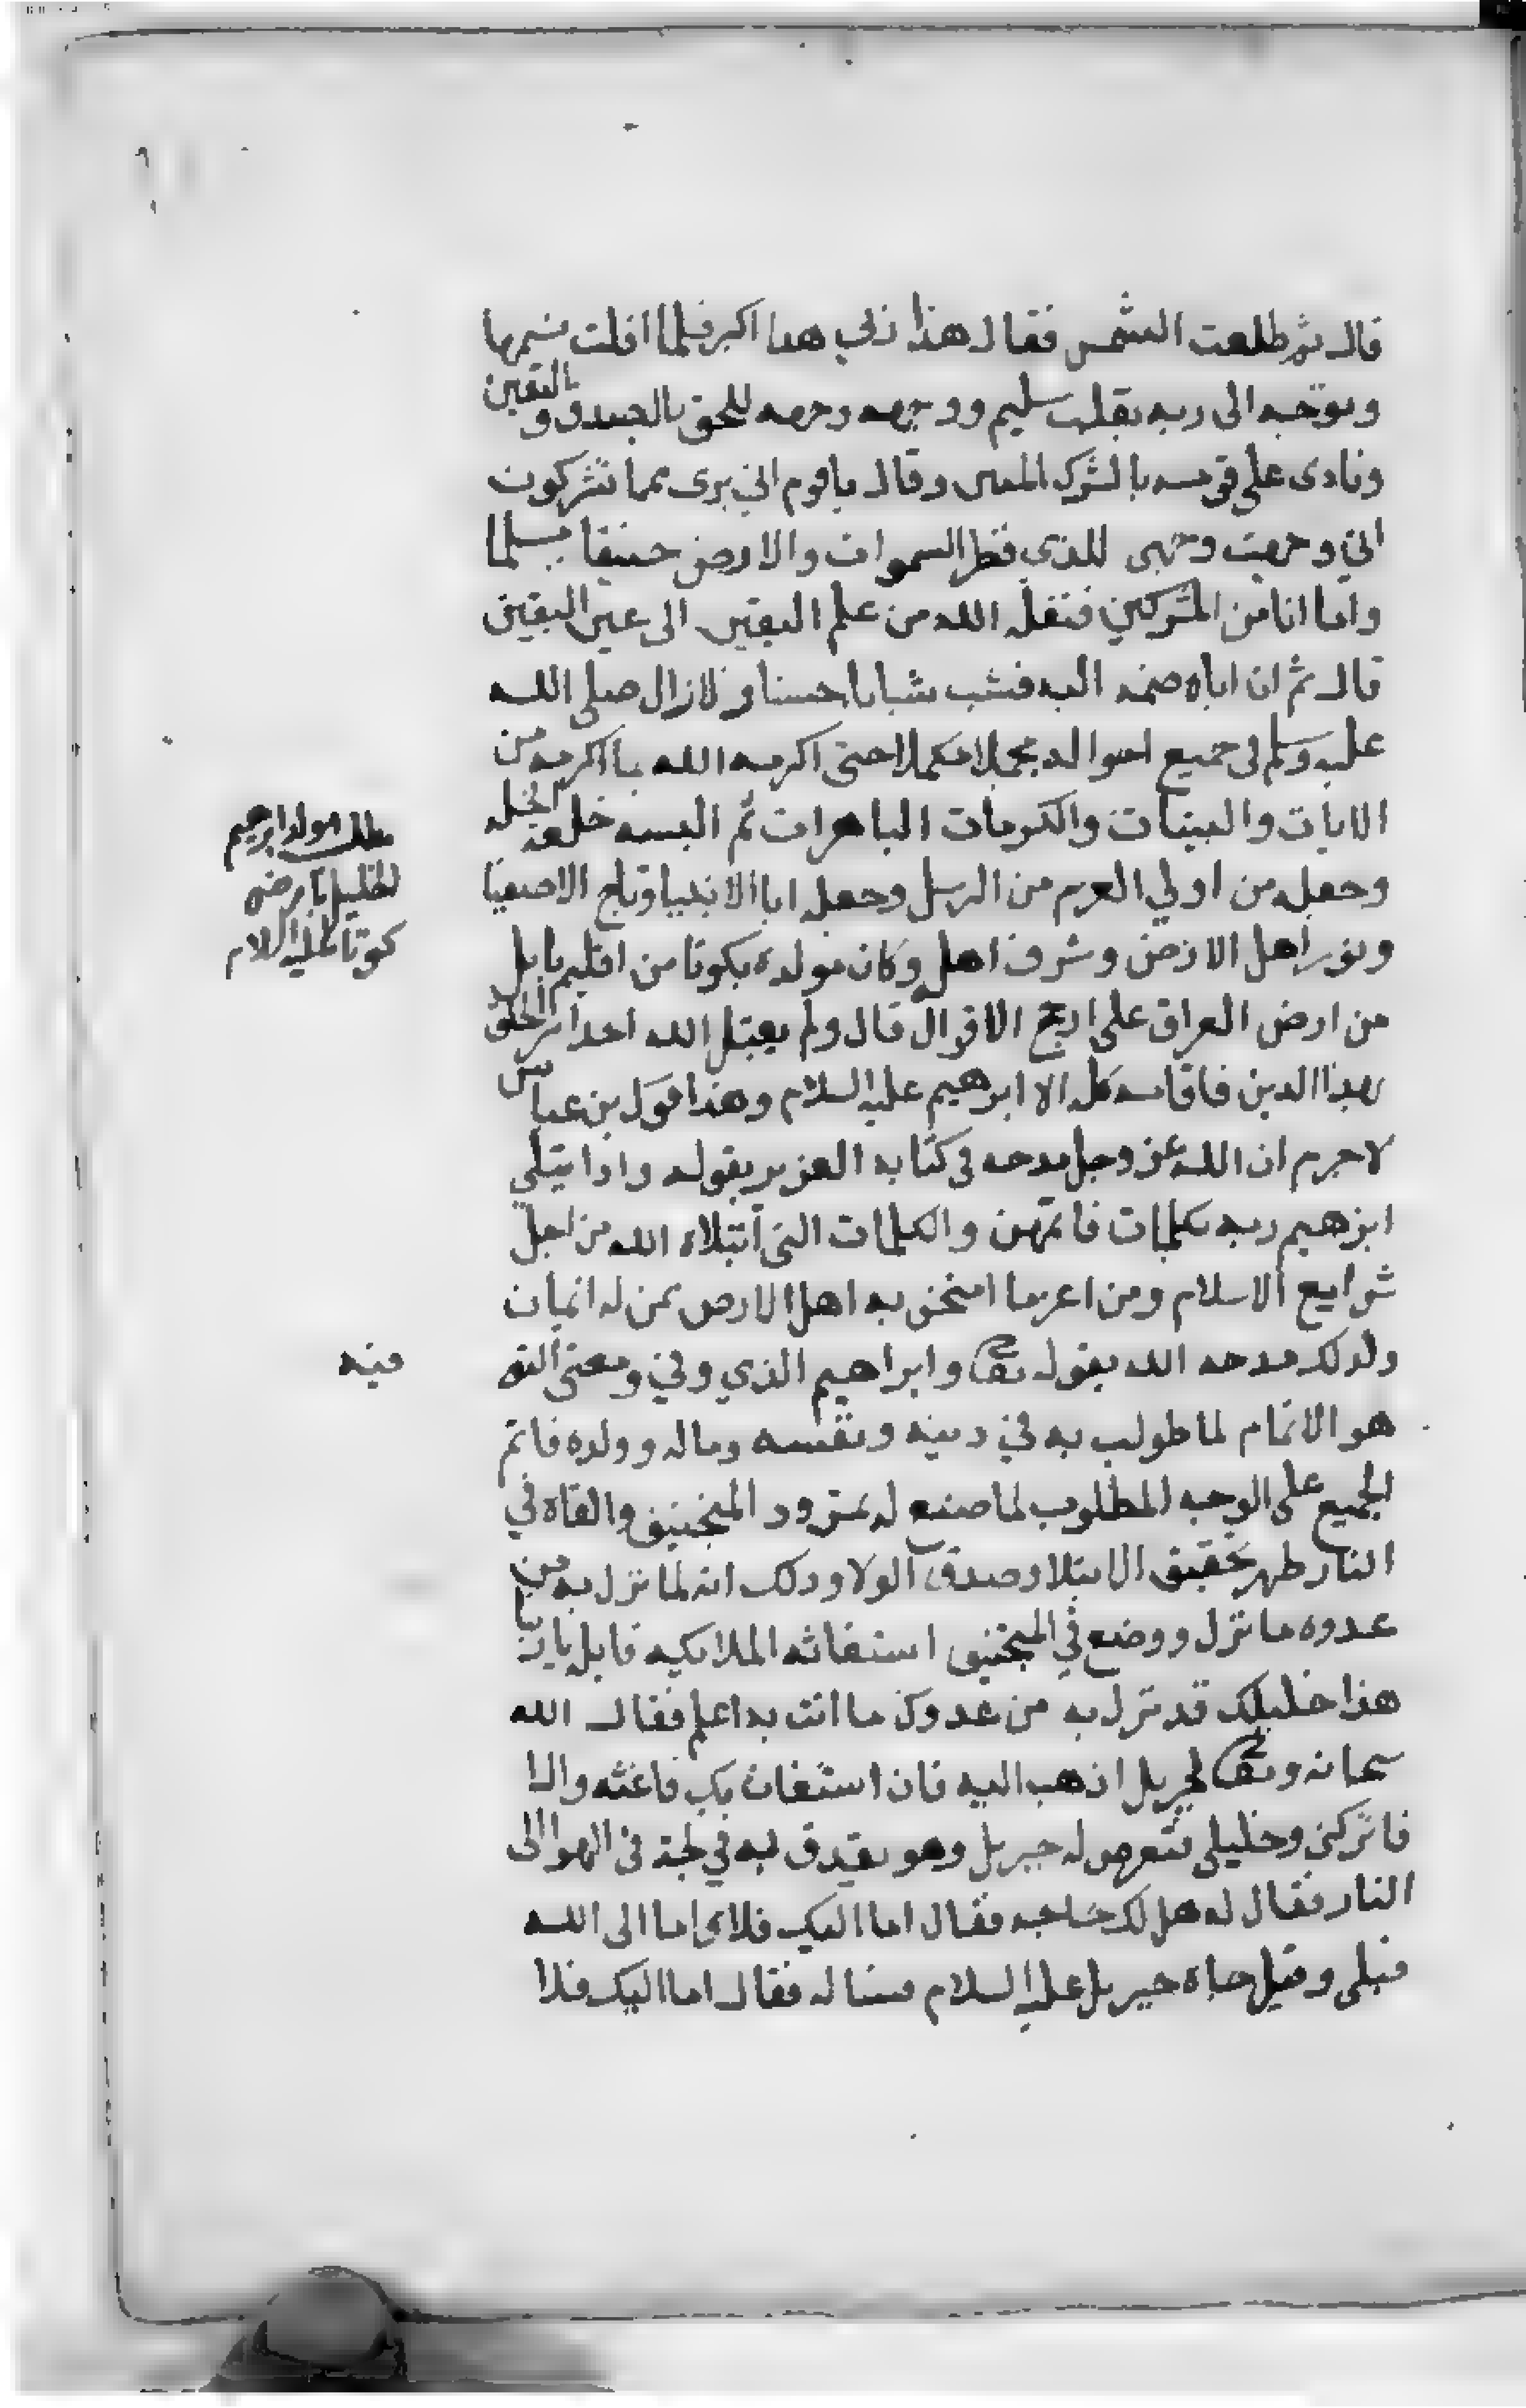 قال ثم طلعت الشمس فقال هذا ربي هدا اكبر فلما افلت
وتوجه الى ربه بقلب سليم ووجهه وجهه للحق بالصدق واليقين
ونادى على قومه بالشرك المبين وقال ياقوم اني برى مما تشركون
اني وجهت وجهى للذي فطر السموات والارض حنيفا مسلما
وما انا من المشركين فنقله الله من علم اليقين الى عين اليقين
قال ثم ان اباه ضمه اليه فشب شبابا حسنا ولازال صلى الله
عليه وسلم فى جميع احواله مجملا مكملا حتى اكرمه الله بما اكرمه من
الايات والبينات والكرمات الباهرات ثم البسه خلعة الخله
وجعله من اولي العزم من الرسل وجعله ابا الانبيا وتاج الاصفيا
ونور اهل الارض وشرف اهل وكان مولده بكوتا من اقليم بابل
من ارض العراق على ارجح الاقوال قال ولم يبتل الله احدا من الخلق
بهذا الدين فاقامه كله الا ابرهيم عليه السلام وهذا قول بن عباس
لاجرم ان الله عز وجل مدحه فى كتابه العزيز بقوله واذا بتلي
ابرهيم ربه بكلمات فاتمهن والكلمات التى ابتلاه الله من اجل
شرايع الاسلام ومن اعز ما امتحن به اهل الارض ممن له ايمان
ولذلك مدحه الله بقوله تعا وابراهيم الذي وفي ومعنى التو
فيه
هو الاتمام لما طولب به في دينه ونفسه وماله وولده فاتم
الجميع على الوجه المطلوب لما صنع له نمرود المنجنيق والقاه في
النار ظهر تحقيق الابتلا وصدق الولا وذلك انه لما نزل به من
عدوه ما نزل ووضع في المنجنيق استغاثه الملايكه قايله ياربنا
هذا خليلك قد نزل به من عدوك ما انت به اعلم فقال الله
سبحانه وتعا لجبريل اذهب اليه فان استغاث بك فاغثه والا
فاتركنى وخليلى فتعرض له جبريل وهو يقدق به في لجة فى الهوا الى
النار فقال له هل لك حاجه فقال اما اليك فلا واما الى الله
فبلى وقيل جاه جبريل عليه السلام فساله فقال اما اليك فلا
مطلب مولد ابرهيم
الخليل بارض
كوتا عليه السلام